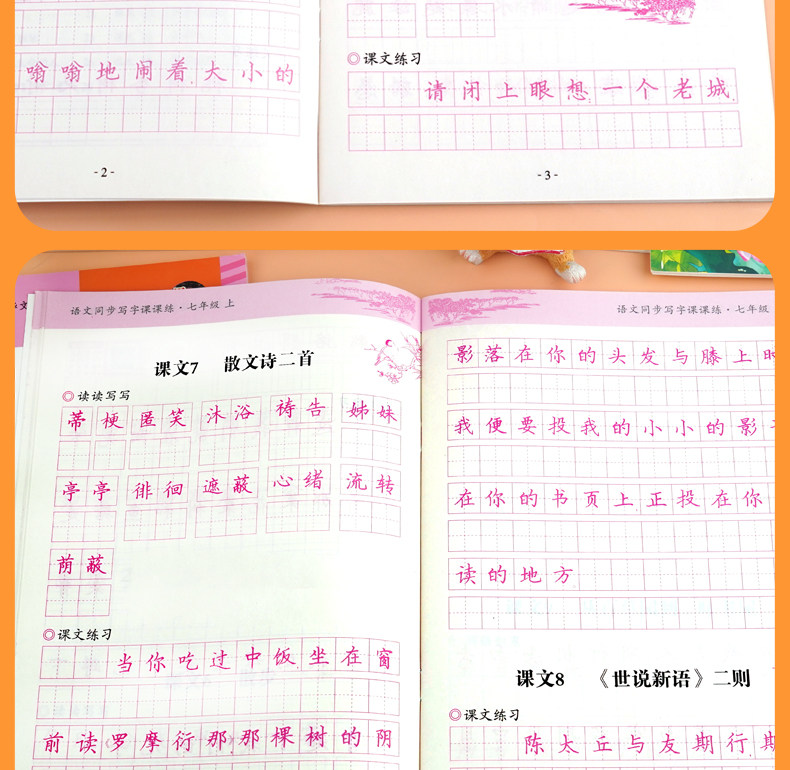 嗡嗡地闹着。大小的
-2-
◎课文练习
请闭上眼想:一个老城
-3-
语文同步写字课课练·七年级 上
课文7 散文诗二首
◎读读写写
蒂梗 匿笑 沐浴 祷告 姊妹
亭亭 徘徊 遮蔽 心绪 流转
荫蔽
◎课文练习
当你吃过中饭,坐在窗
前读《罗摩衍那》,那棵树的阴
语文同步写字课课练·七年级
影落在你的头发与膝上时
我便要投我的小小的影
在你的书页上,正投在你
读的地方
课文8 《世说新语》二则
◎课文练习
陈太丘与友期行,期